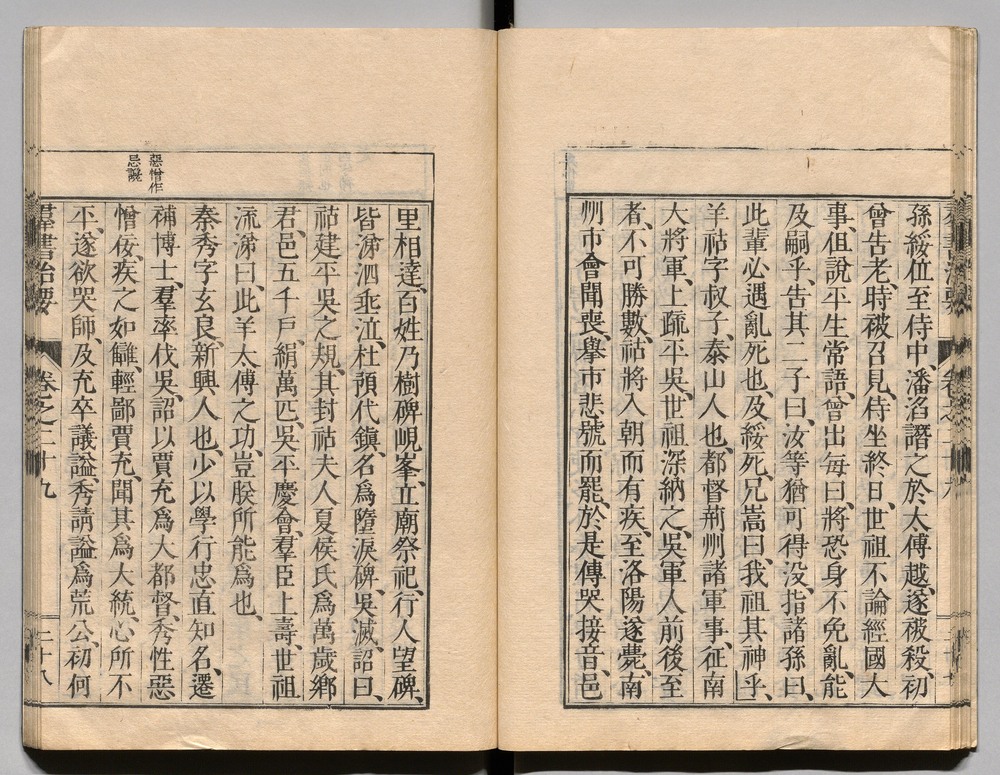 孫綏位至侍中、潘滔譖之於太傅越、遂被殺、初
曾告老、時被召見、侍坐終日、世祖不論經國大
事、但說平生常語、曾出每曰、將恐身不免亂、能
及嗣乎、告其二子曰、汝等猶可得没、指諸孫曰、
此輩必遇亂死也、及綏死、兄嵩曰、我祖其神乎、
羊祜字叔子、泰山人也、都督荊州諸軍事、征南
大將軍、上疏平吳、世祖深納之、吳軍人前後至
者、不可勝數、祜將入朝而有疾、至洛陽遂薨、南
州市會聞喪、舉市悲號而罷、於是、傳哭接音、邑
里相達、百姓乃樹碑峴峯、立廟祭祀、行人望碑、
皆涕泗垂泣、杜預代鎮、名爲墮淚碑、吳滅、詔曰、
祜建平吳之規、其封祜夫人夏侯氏爲萬歲鄉
君、邑五千戶、絹萬匹、吳平慶會、羣臣上壽、世祖
流涕曰、此羊太傅之功、豈朕所能爲也、
秦秀字玄良、新興人也、少以學行忠直知名、遷
補博士、羣率伐吳、詔以賈充爲大都督、秀性惡
惡憎作
忌讒
憎佞、疾之如讎、輕鄙賈充、聞其爲大統、心所不
平、遂欲哭師、及充卒議謚、秀請謚爲荒公、初何
羣書治要
卷之二十九
二十八